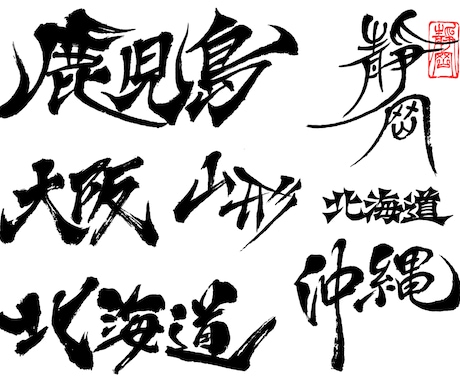 鹿児島
靜岡
靜岡
大阪
山形
北海道
北海道
沖縄